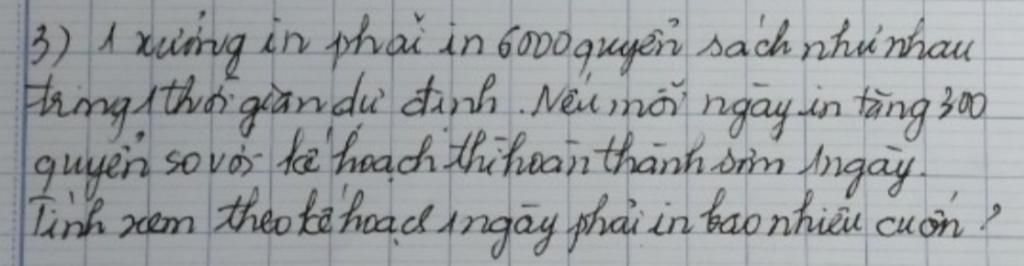 3) 1 xưởng in phải in 6000 quyển sách như nhau
trong 1 thời gian dự định. Nếu mỗi ngày in tăng 300
quyển so với kế hoạch thì hoàn thành sớm 1 ngày.
Tính xem theo kế hoạch 1 ngày phải in bao nhiêu cuốn?